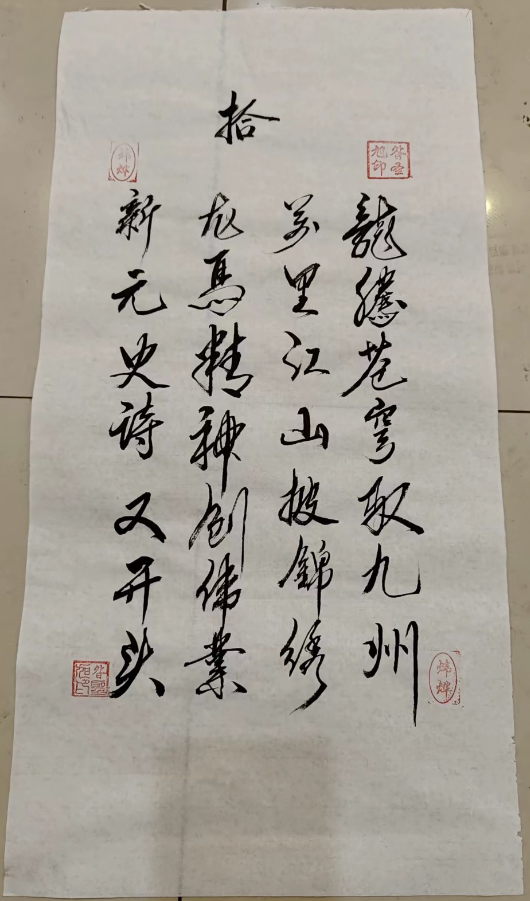 拾
龍騰苍穹取九州
万里江山披錦绣
龙馬精神创偉業
新元史诗又开头